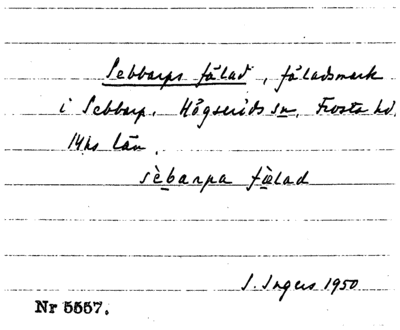 Sebbarps fälad, fäladsmark
i Sebbarp, Högseröds sn, Frosta hd,
Mhs län.
sèbarpa fälad
I. Ingers 1950
Nr 5557.